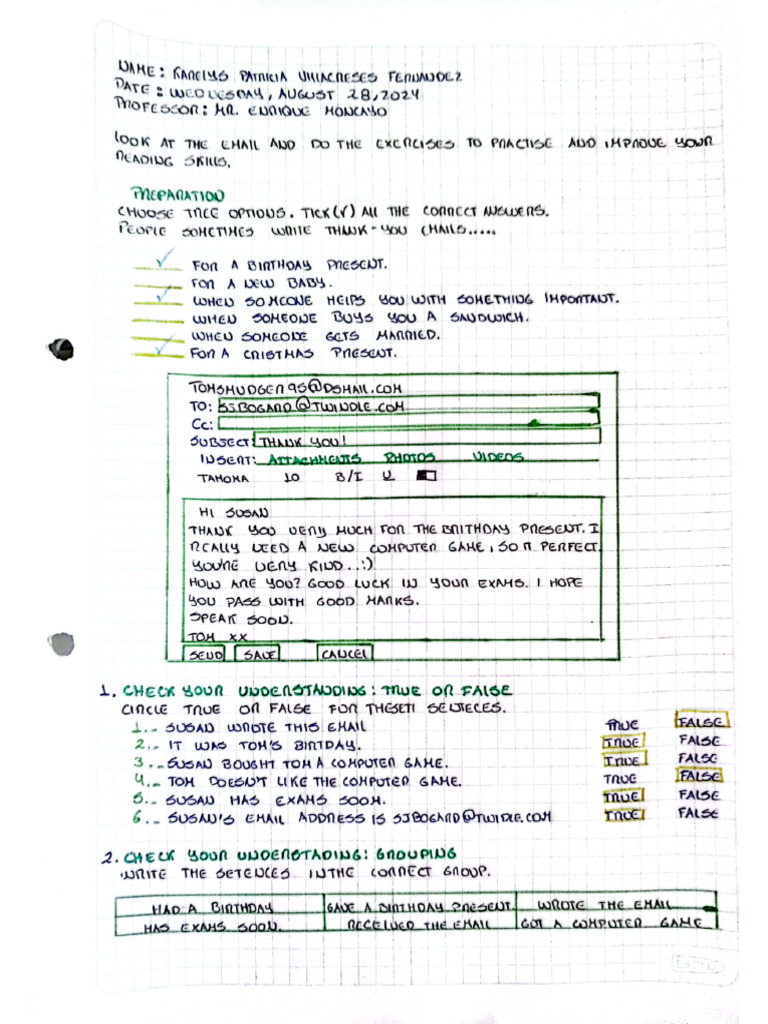 NAME: KARELYS PATRICIA VILLACRESES FERNANDEZ
DATE: WEDNESDAY, AUGUST 28, 2024
PROFESSOR: MR. ENRIQUE MONCAYO
LOOK AT THE EMAIL AND DO THE EXERCISES TO PRACTISE AND IMPROVE YOUR
READING SKILLS.
PREPARATION
CHOOSE TREE OPTIONS. TICK(√) ALL THE CORRECT ANSWERS.
PEOPLE SOMETIMES WRITE THANK-YOU EMAILS.....
✓ FOR A BIRTHDAY PRESENT.
FOR A NEW BABY.
✓ WHEN SOMEONE HELPS YOU WITH SOMETHING IMPORTANT.
WHEN SOMEONE BUYS YOU A SANDWICH.
WHEN SOMEONE GETS MARRIED.
✓ FOR A CRISTMAS PRESENT.
TOMSMUDGER95@DSMAIL.COM
TO: SJBOGARD@TWINDLE.COM
CC:
SUBJECT: THANK YOU!
INSERT: ATTACHMENTS PHOTOS VIDEOS
TAHOMA 10 B/I U
HI SUSAN
THANK YOU VERY MUCH FOR THE BRITHDAY PRESENT. I
REALLY NEED A NEW COMPUTER GAME, SO PERFECT.
YOU'RE VERY KIND..:)
HOW ARE YOU? GOOD LUCK IN YOUR EXAMS. I HOPE
YOU PASS WITH GOOD MARKS.
SPEAK SOON.
TOM XX
SEND SAVE CANCEL
1. CHECK YOUR UNDERSTANDING: TRUE OR FALSE
CIRCLE TRUE OR FALSE FOR SETECES.
1.- SUSAN WROTE THIS EMAIL TRUE FALSE
2.- IT WAS TOM'S BIRTDAY. TRUE FALSE
3.- SUSAN BOUGHT TOM A COMPUTER GAME. TRUE FALSE
4.- TOM DOESN'T LIKE THE COMPUTER GAME. TRUE FALSE
5.- SUSAN HAS EXAMS SOON. TRUE FALSE
6.- SUSAN'S EMAIL ADDRESS IS SJBOGARD@TWIDLE.COM TRUE FALSE
2. CHECK YOUR UNDERSTADING: GROUPING
WRITE THE SETENCES IN THE CORRECT GROUP.
HAD A BIRTHDAY GAVE A BIRTHDAY PRESENT. WROTE THE EMAIL
HAS EXAMS SOON. RECEIVED THE EMAIL GOT A COMPUTER GAME